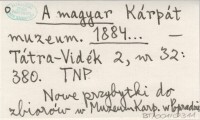 A magyar Kárpát
muzeum. 1884... –
Tátra-Vidék 2, nr 32:
380. TNP
Nowe przybytki do
zbiorów w Muzeum Karp. w Popradzie